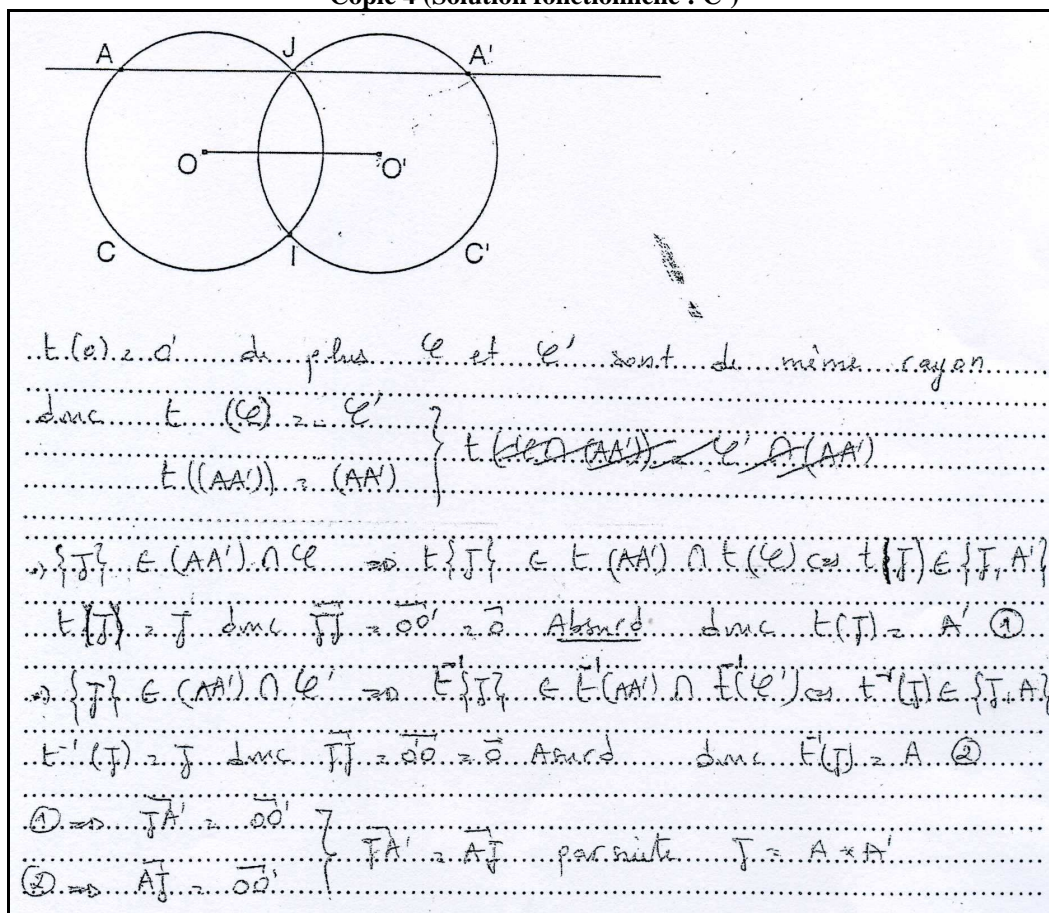 Copie 4 (Solution fonctionnelle : C )
A J A'
O O'
C I C'
t(o) = o' de plus 𝒞 et 𝒞' sont de même rayon
donc t (𝒞) = 𝒞'
t((AA')) = (AA') } t(𝒞 ∩ (AA')) = 𝒞' ∩ (AA')
.) {J} ∈ (AA') ∩ 𝒞 => t{J} ∈ t (AA') ∩ t(𝒞) <=> t(J) ∈ {J, A'}
t(J) = J donc JJ = OO' = O Absurd donc t(J) = A' ①
.) {J} ∈ (AA') ∩ 𝒞' => t⁻¹{J} ∈ t⁻¹(AA') ∩ t⁻¹(𝒞') <=> t⁻¹(J) ∈ {J, A}
t⁻¹(J) = J donc JJ = O'O = O Absurd donc t⁻¹(J) = A ②
① => JA' = OO'
} JA' = AJ par suite J = A * A'
② => AJ = OO'